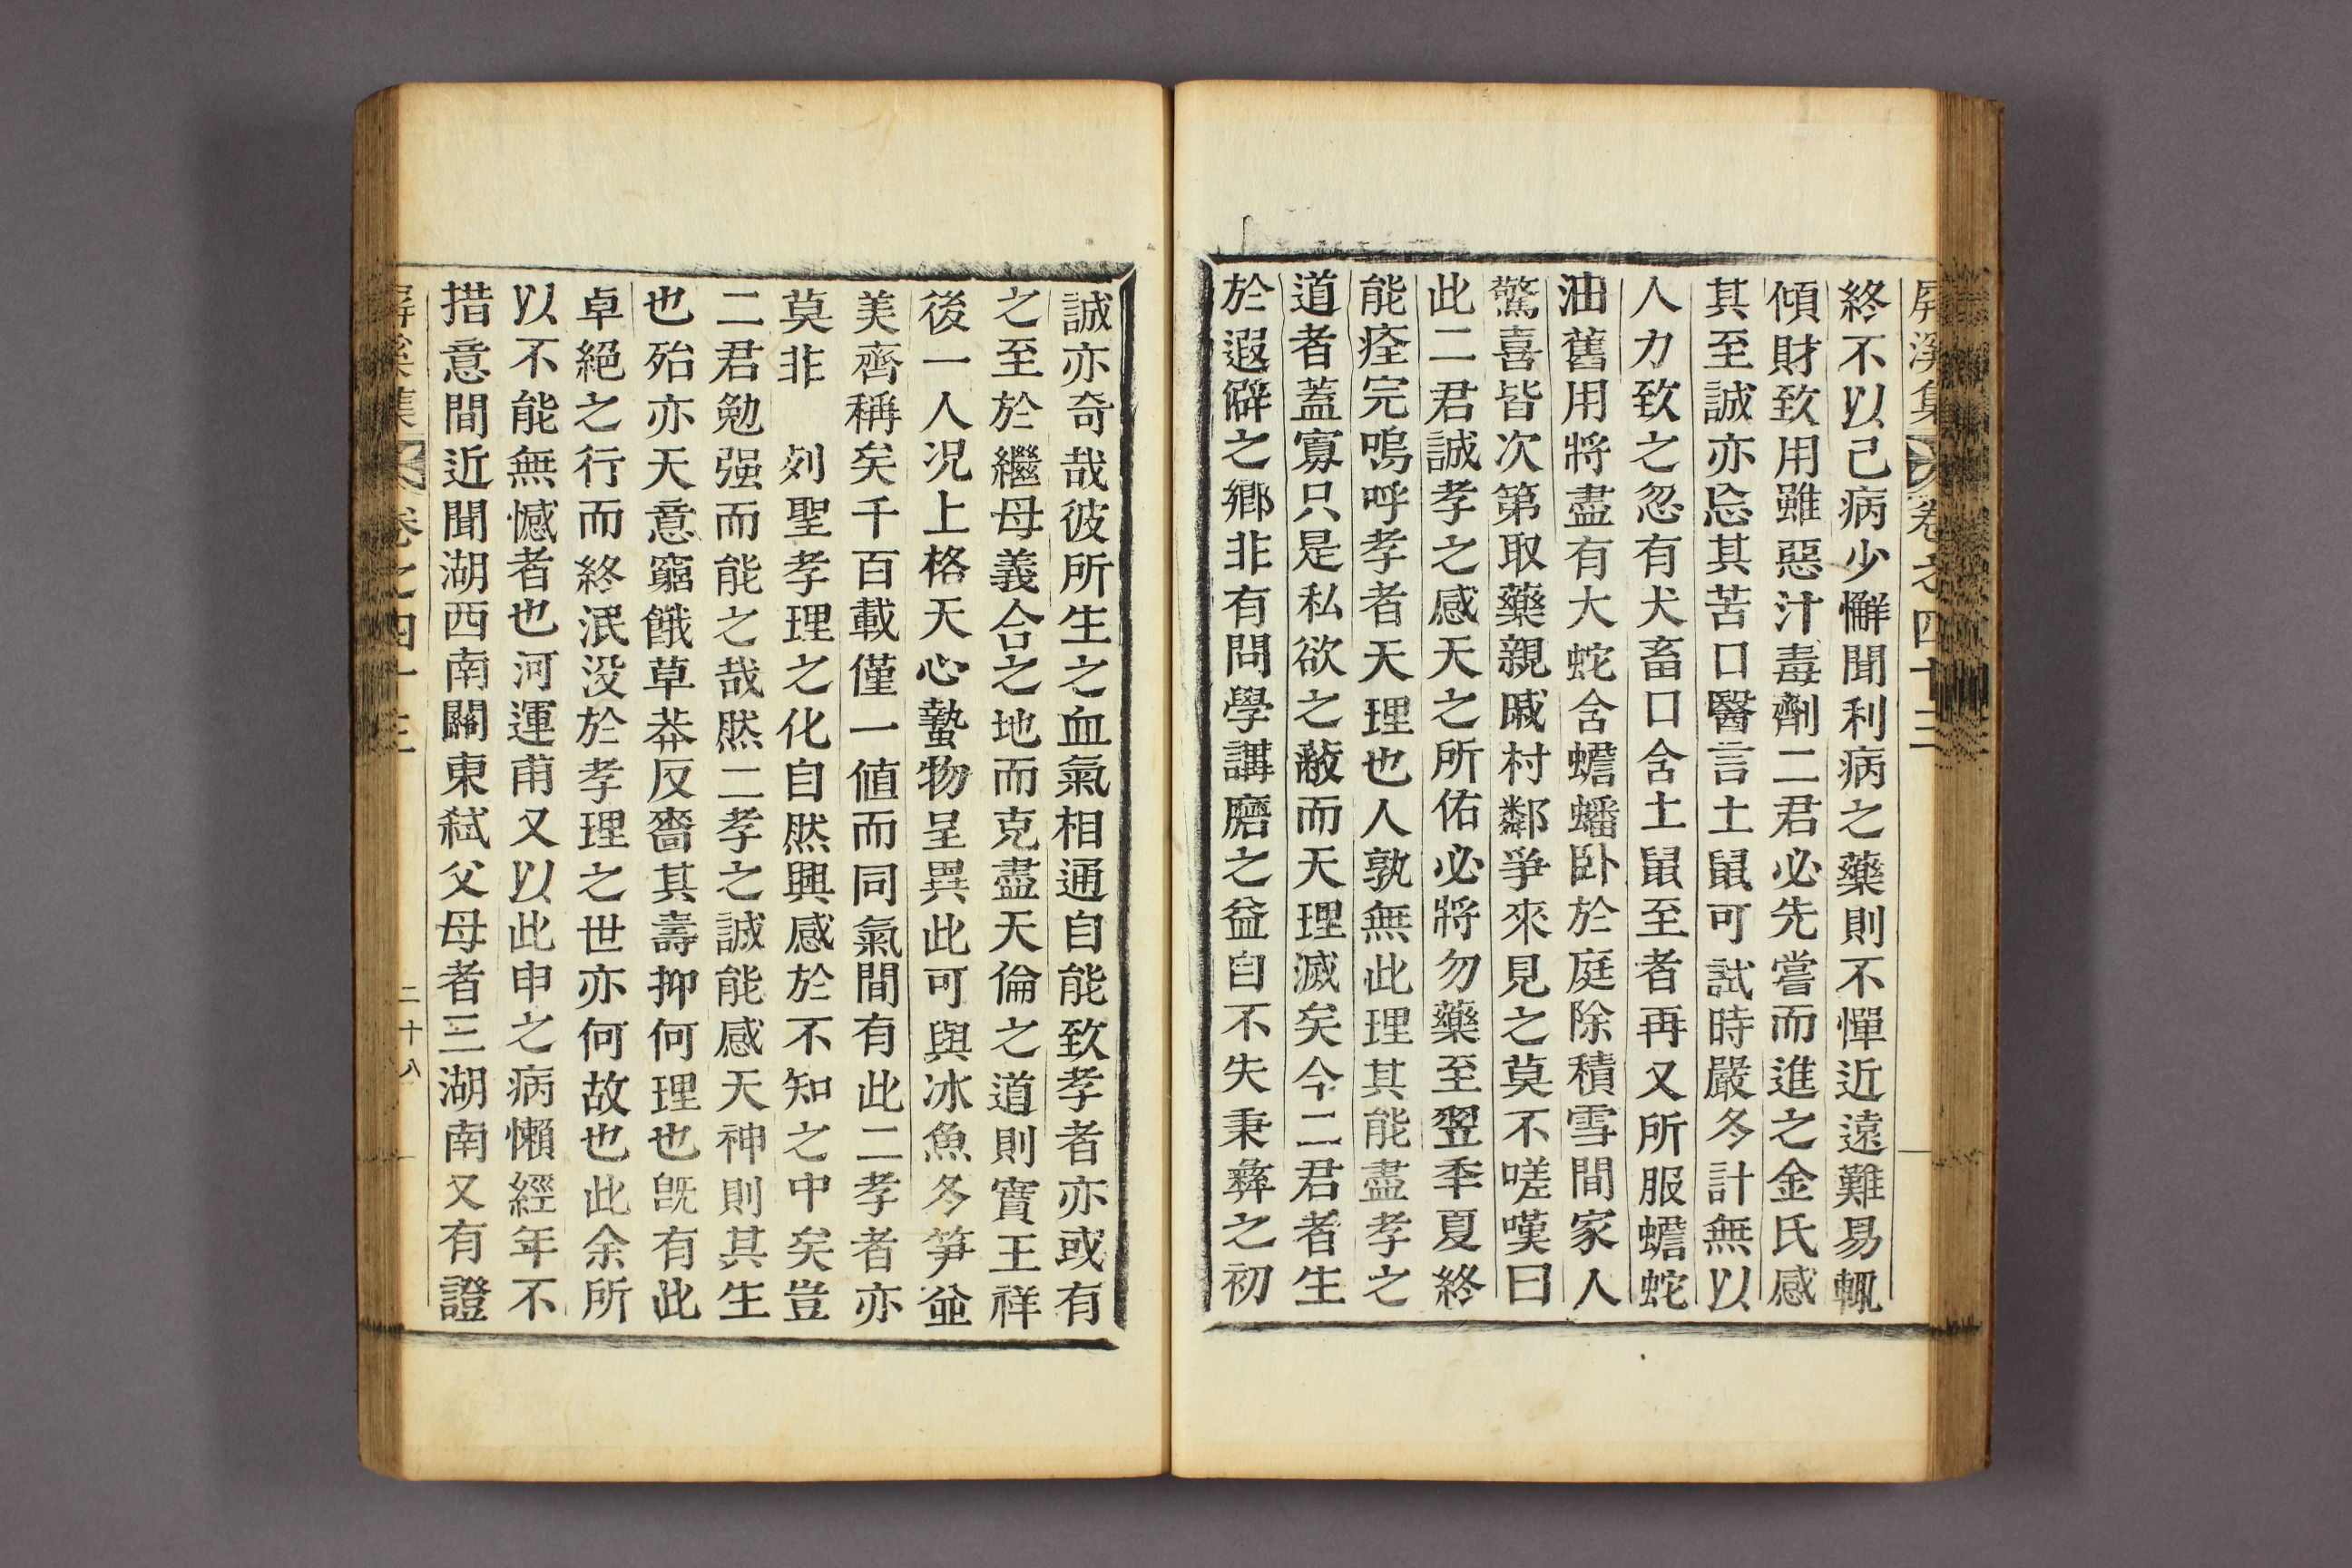 屏溪集 卷之四十三
終不以己病少懈聞利病之藥則不憚近遠難易輒
傾財致用雖惡汁毒劑二君必先嘗而進之金氏感
其至誠亦忘其苦口醫言土鼠可試時嚴冬計無以
人力致之忽有犬畜口含土鼠至者再又所服蟾蛇
油舊用將盡有大蛇含蟾蟠卧於庭除積雪間家人
驚喜皆次第取藥親戚村鄰爭來見之莫不嗟嘆曰
此二君誠孝之感天之所佑必將勿藥至翌季夏終
能痊完嗚呼孝者天理也人孰無此理其能盡孝之
道者蓋寡只是私欲之蔽而天理滅矣今二君者生
於遐僻之鄕非有問學講磨之益自不失秉彜之初
誠亦奇哉彼所生之血氣相通自能致孝者亦或有
之至於繼母義合之地而克盡天倫之道則實王祥
後一人况上格天心蟄物呈異此可與冰魚冬笋並
美齊稱矣千百載僅一値而同氣間有此二孝者亦
莫非 列聖孝理之化自然興感於不知之中矣豈
二君勉强而能之哉然二孝之誠能感天神則其生
也殆亦天意窮餓草莽反嗇其壽抑何理也旣有此
卓絶之行而終泯没於孝理之世亦何故也此余所
以不能無憾者也河運甫又以此申之病懶經年不
措意間近聞湖西南關東弑父母者三湖南又有證
屏溪集 卷之四十三 二十八